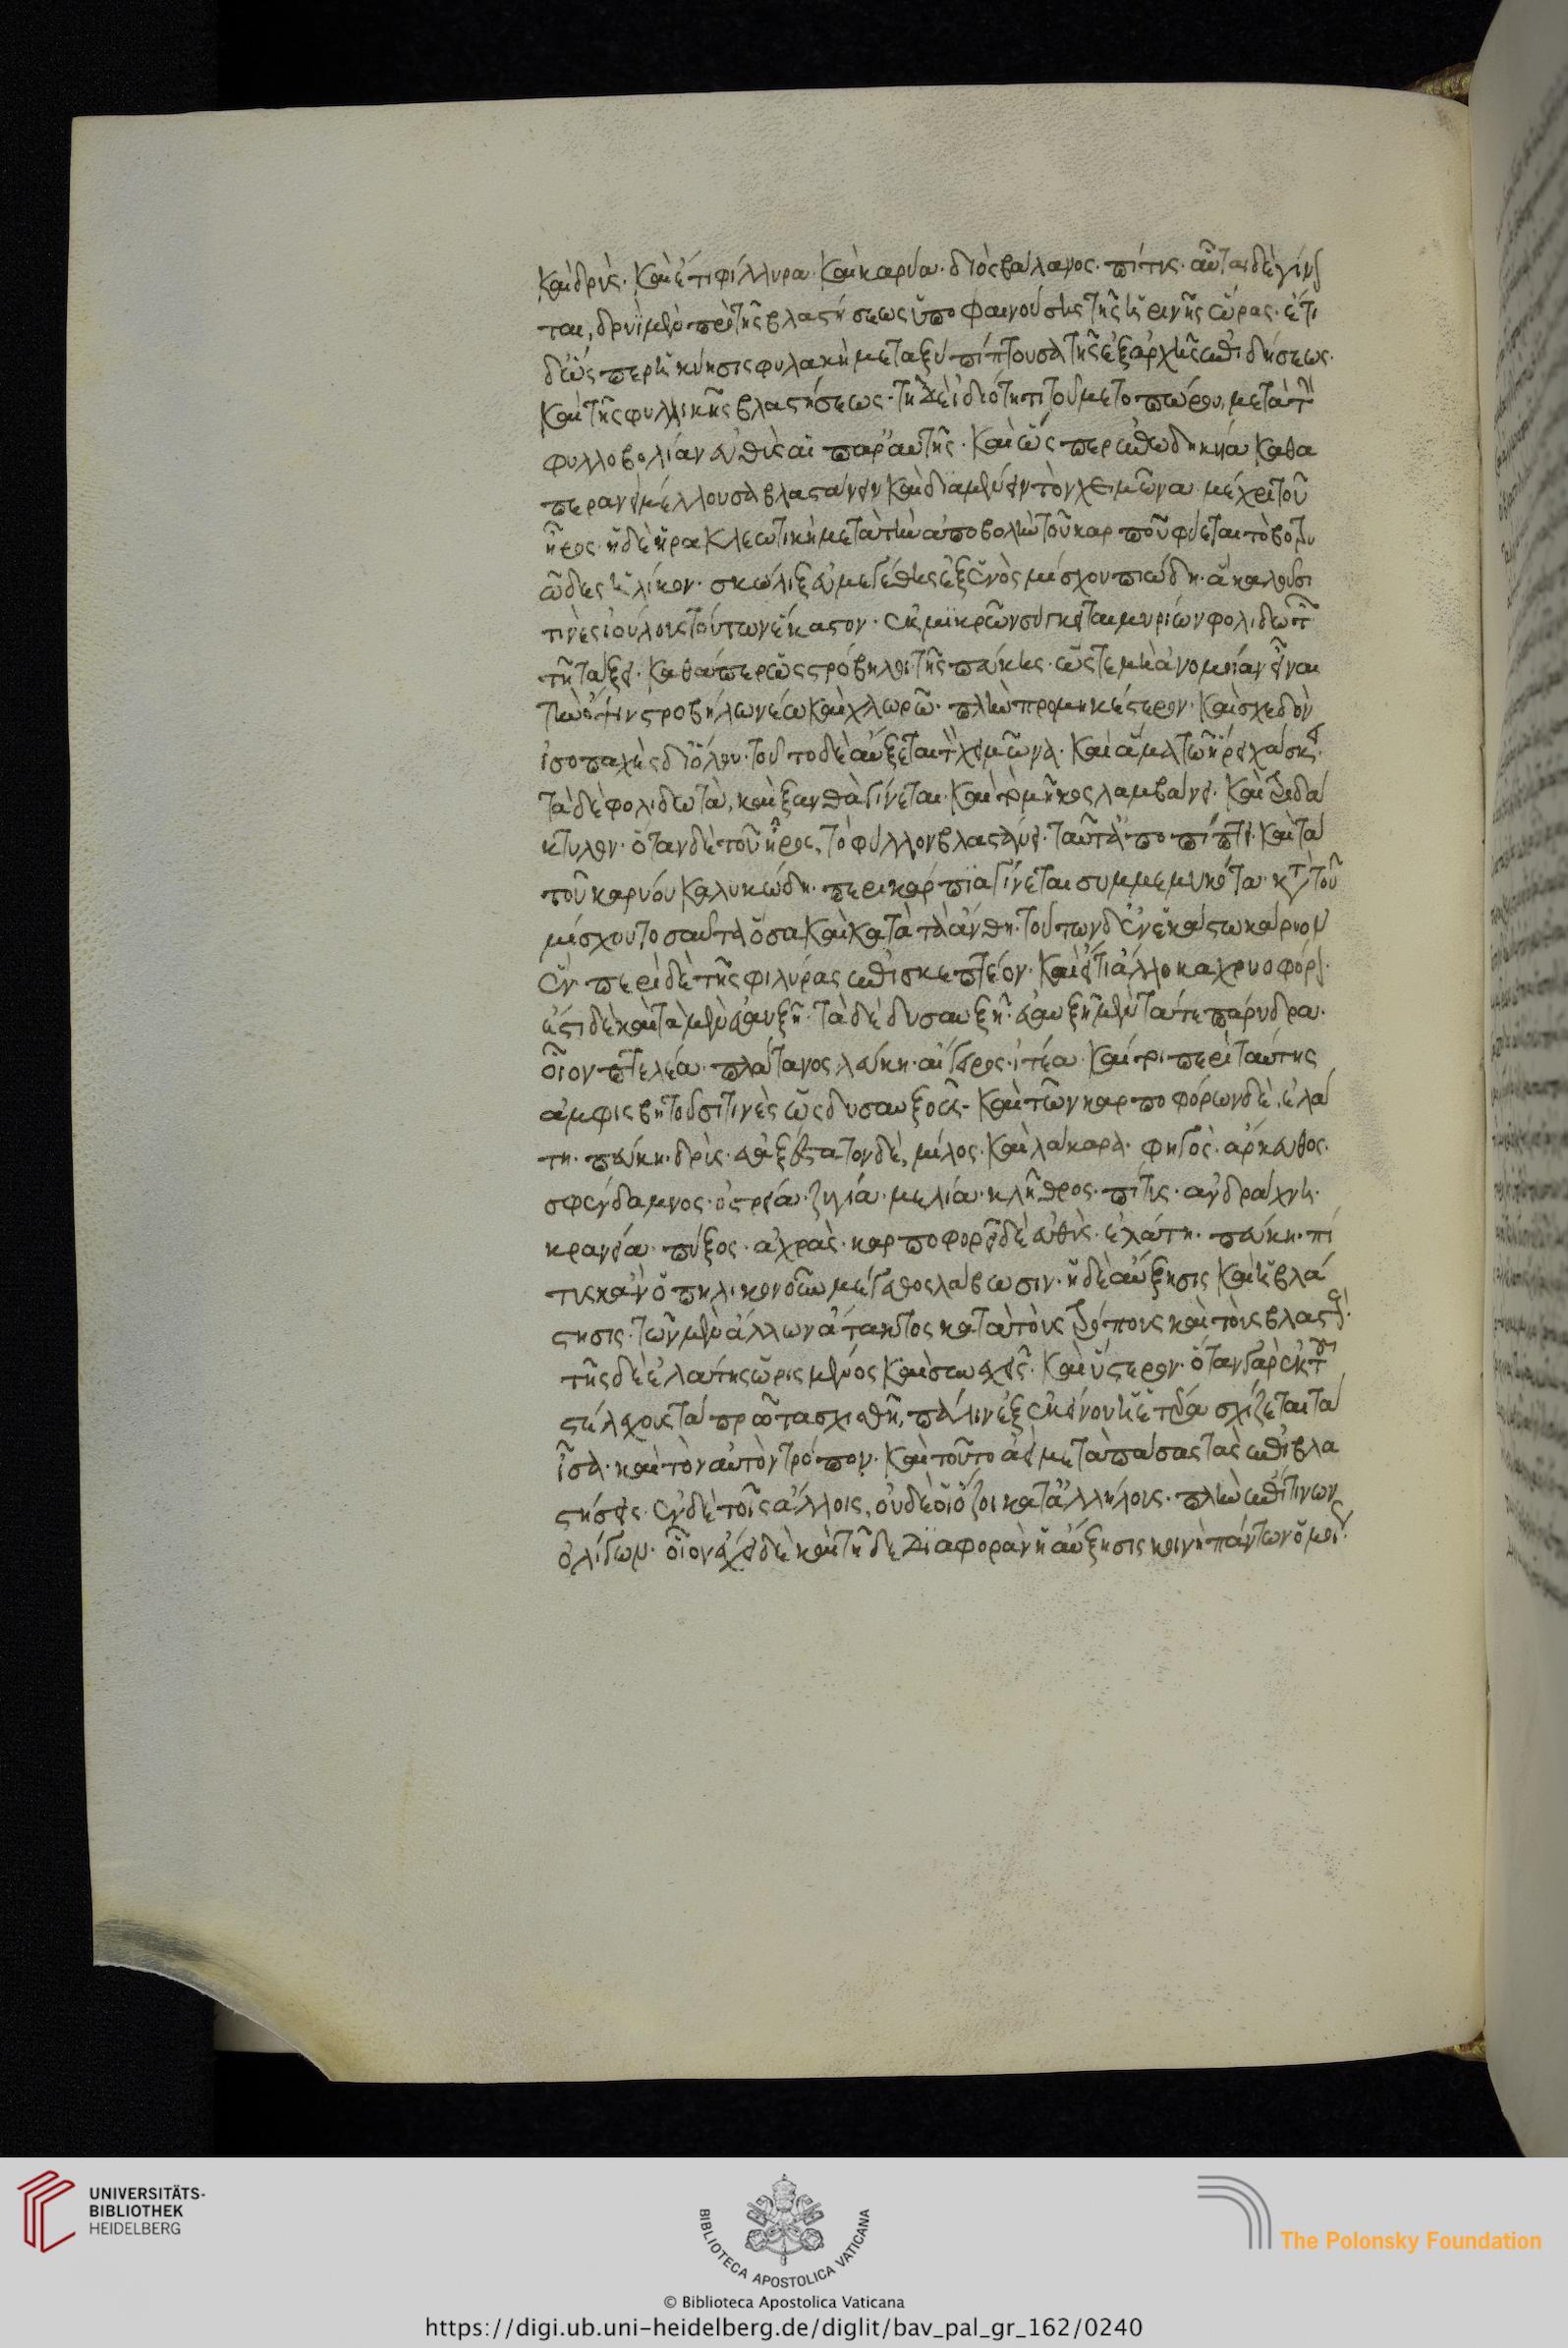 καὶ δρῦς· καὶ ἔτι φίλλυρα· καὶ καρύα· διὸς βάλανος· πίτυς· αὗται δὲ γίνον
ται, δρυῒ μὲν πρὸ τῆς βλαστήσεως ὑποφαινούσης τῆς ἠρινῆς ὥρας· ἔτι
δ' ὥσπερεὶ κύησις φυλακὴ μεταξὺ πίπτουσα τῆς ἐξαρχῆς ἐπιδήσεως·
καὶ τῆς φυλλικῆς βλαστήσεως· τῆ δὲ ἰδιότητι τοῦ μετοπώρου, μετὰ τὴν
φυλλοβολίαν εὐθὺς αἱ παρ' αὐτῆς· καὶ ὥσπερ ἐπωδηκυῖα καθα
περανεὶ μέλλουσα βλαστάνειν καὶ διαμένειν τὸν χειμῶνα μέχρι τοῦ
ἦρος· ἡ δὲ ἡρακλεωτικὴ μετὰ τὴν ἀποβολὴν τοῦ καρποῦ φύεται τὸ βοτρυ
ῶδες ἡλίκον· σκώληξ εὐμεγέθης ἐξ ἑνὸς μίσχου πιώδη· ἃ καλοῦσι
τινὲς ἰούλους τούτων ἕκαστον· ἐκ μικρῶν σύγκειται μυρίων φολιδωτῶν
τῆ τάξει· καθάπερ ὡς στρόβηλοι τῆς πεύκης· ὥστε μὴ ἀνομοίαν εἶναι
τὴν ὄψιν στροβήλω νέω καὶ χλωρῶ· πλὴν προμηκέστερον· καὶ σχεδὸν
ἰσοπαχὲς δι' ὅλου· τοῦτο δὲ αὔξεται τὸν χειμῶνα· καὶ ἅμα τῶ ἦρι χάσκει·
τὰ δὲ φολιδωτὰ, καὶ ξανθὰ γίνεται· καὶ τὸ μῆκος λαμβάνει· καὶ τριδά
κτυλον· ὅταν δὲ τοῦ ἦρος, τὸ φύλλον βλαστάνει· ταῦτα ἀποπίπτει· καὶ τὰ
τοῦ καρύου καλυκώδη· περικάρπια γίνεται συμμεμυκότα· κατὰ τοῦ
μίσχου τοσαῦτα ὅσα καὶ κατὰ τὰ ἄνθη· τούτων δ' ἐν ἑκάστω κάρυον
ἕν· περὶ δὲ τῆς φιλύρας ἐπισκεπτέον· καὶ εἴ τι ἄλλο καχρυοφόρον·
ἔστι δὲ καὶ τὰ μὲν εὐαυξῆ· τὰ δὲ δυσαυξῆ· εὐαυξῆ μὲν τά τε πάρυδρα·
οἷον πτελέα· πλάτανος λεύκη· αἴγειρος· ἰτέα· καί τοι περὶ ταύτης
ἀμφισβητοῦσι τινὲς ὡς δυσαυξοῦς- καὶ τῶν καρποφόρων δὲ, ἐλά
τη· πεύκη· δρῦς· εὐαυξέστατον δὲ, μίλος· καὶ λάκαρα· φηγός· ἄρκευθος·
σφένδαμνος· ὀστρεία· ζυγία· μελία· κλῆθρος· πίτυς· ἀνδράχνη·
κρανεία· πύξος· ἀχρὰς· καρποφορεῖ δὲ εὐθὺς· ἐλάτη· πεύκη· πί
τυς κἂν ὁπηλικονοῦν μέγεθος λάβωσιν· ἡ δὲ αὔξησις καὶ ἡ βλά
στησις· τῶν μὲν ἄλλων ἄτακτος κατὰ τοὺς τρόπους καὶ τοὺς βλαστούς·
τῆς δὲ ἐλάτης ὡρισμένος καὶ συνεχεῖς· καὶ ὕστερον· ὅταν γὰρ ἐκ τοῦ
στελέχους τὰ πρῶτα σχισθῆ, πάλιν ἐξ ἐκείνου ἡ ἑτέρα σχίζεται τὰ
ἶσα· κατὰ τὸν αὐτὸν τρόπον· καὶ τοῦτο ἀεὶ μετὰ πάσας τὰς ἐπιβλα
στήσεις· ἐν δὲ τοῖς ἄλλοις, οὐδὲ οἱ ὄζοι κατ' ἀλλήλους· πλὴν ἐπί τινων
ὀλίγων· οἷον ἔχει δὲ καὶ τῆδε διαφορὰν ἡ αὔξησις κοινὴ πάντων ὁμοίως·
UNIVERSITÄTS-
BIBLIOTHEK
HEIDELBERG
BIBLIOTECA APOSTOLICA VATICANA
The Polonsky Foundation
© Biblioteca Apostolica Vaticana
https://digi.ub.uni-heidelberg.de/diglit/bav_pal_gr_162/0240